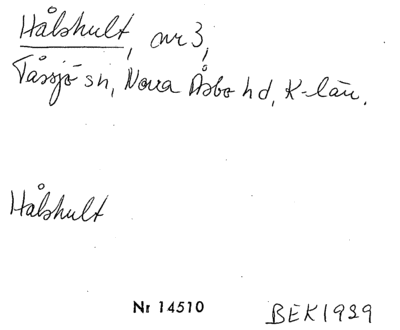 Hålshult, nr 3,
Tåssjö sn, Norra Åsbo hd, K-län.
Hålshult
Nr 14510
BEK1939